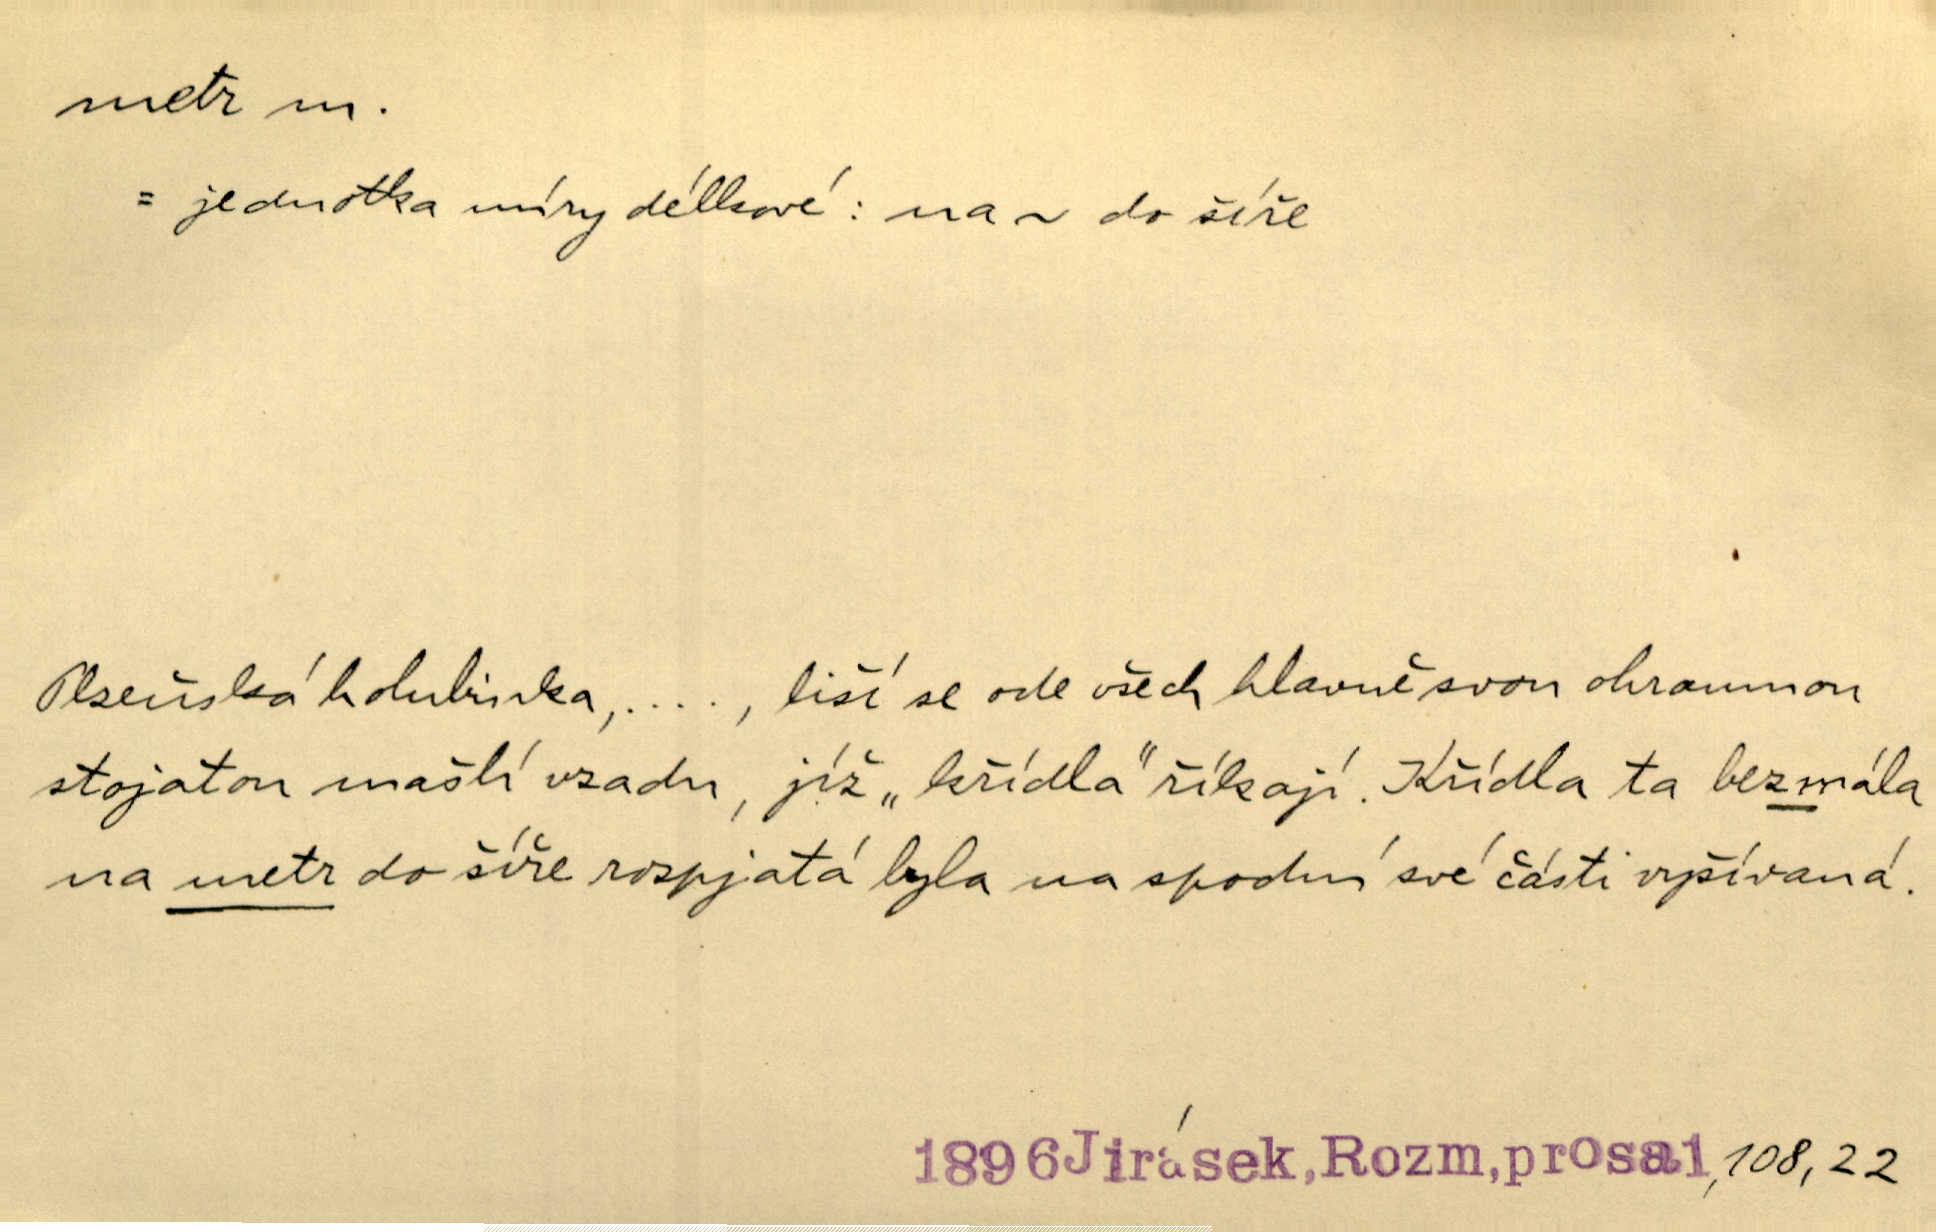 metr m.
= jednotka míry délkové: na ~ do šíře
Plzeňská holubinka, ...., liší se ode všech hlavně svou ohromnou
stojatou mašlí vzadu, jíž „křídla" říkají. Křídla ta bezmála
na metr do šíře rozpjatá byla na spodní své části vyšívaná.
1896 Jirásek, Rozm, prosa1, 108, 22